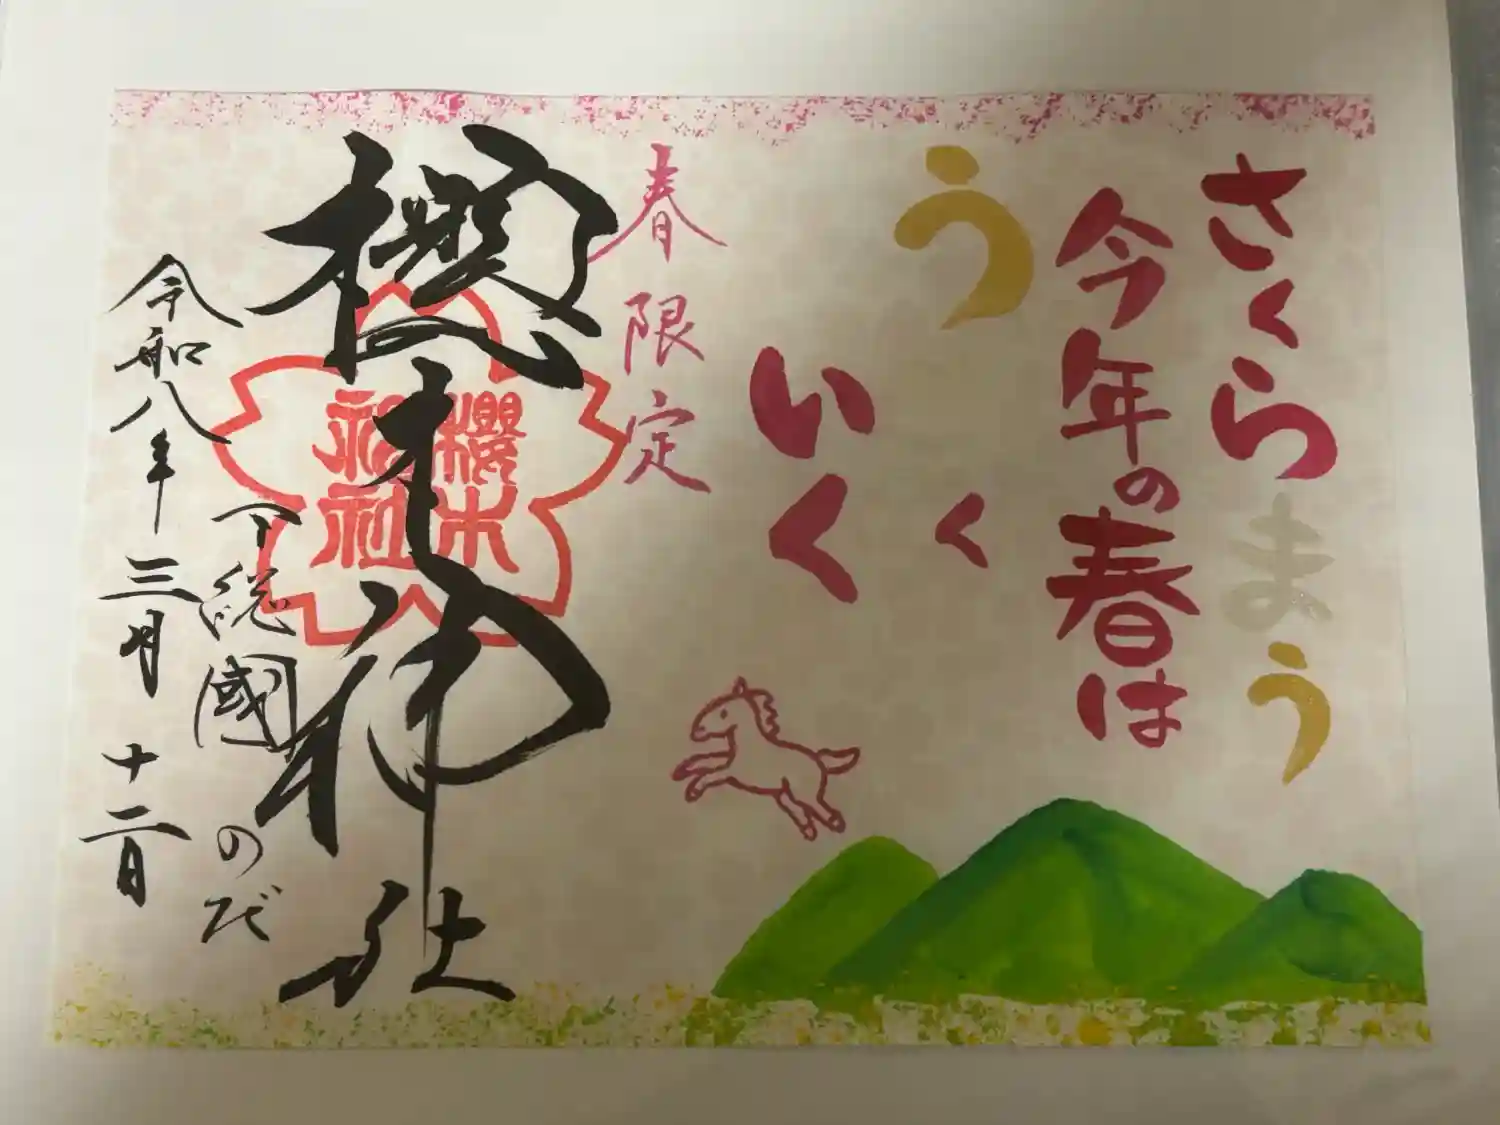 さくらまう
今年の春は
うく
いく
春限定
櫻木神社
櫻木
神社
下総國 のだ
令和八年三月十二日